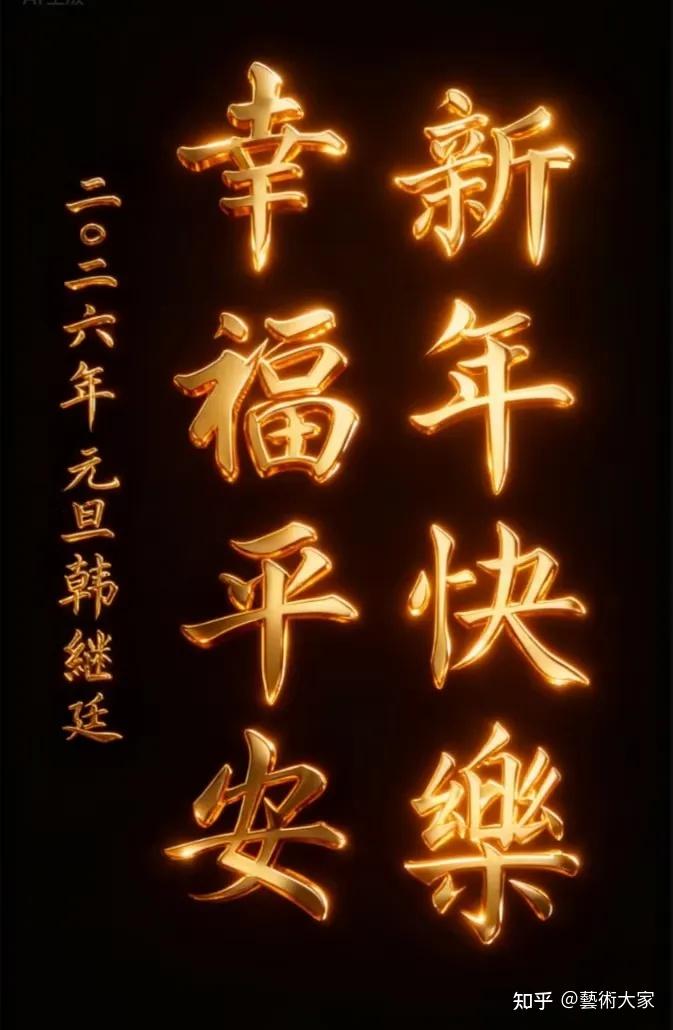 新年快樂
幸福平安
二〇二六年元旦韩継廷
知乎 @藝術大家